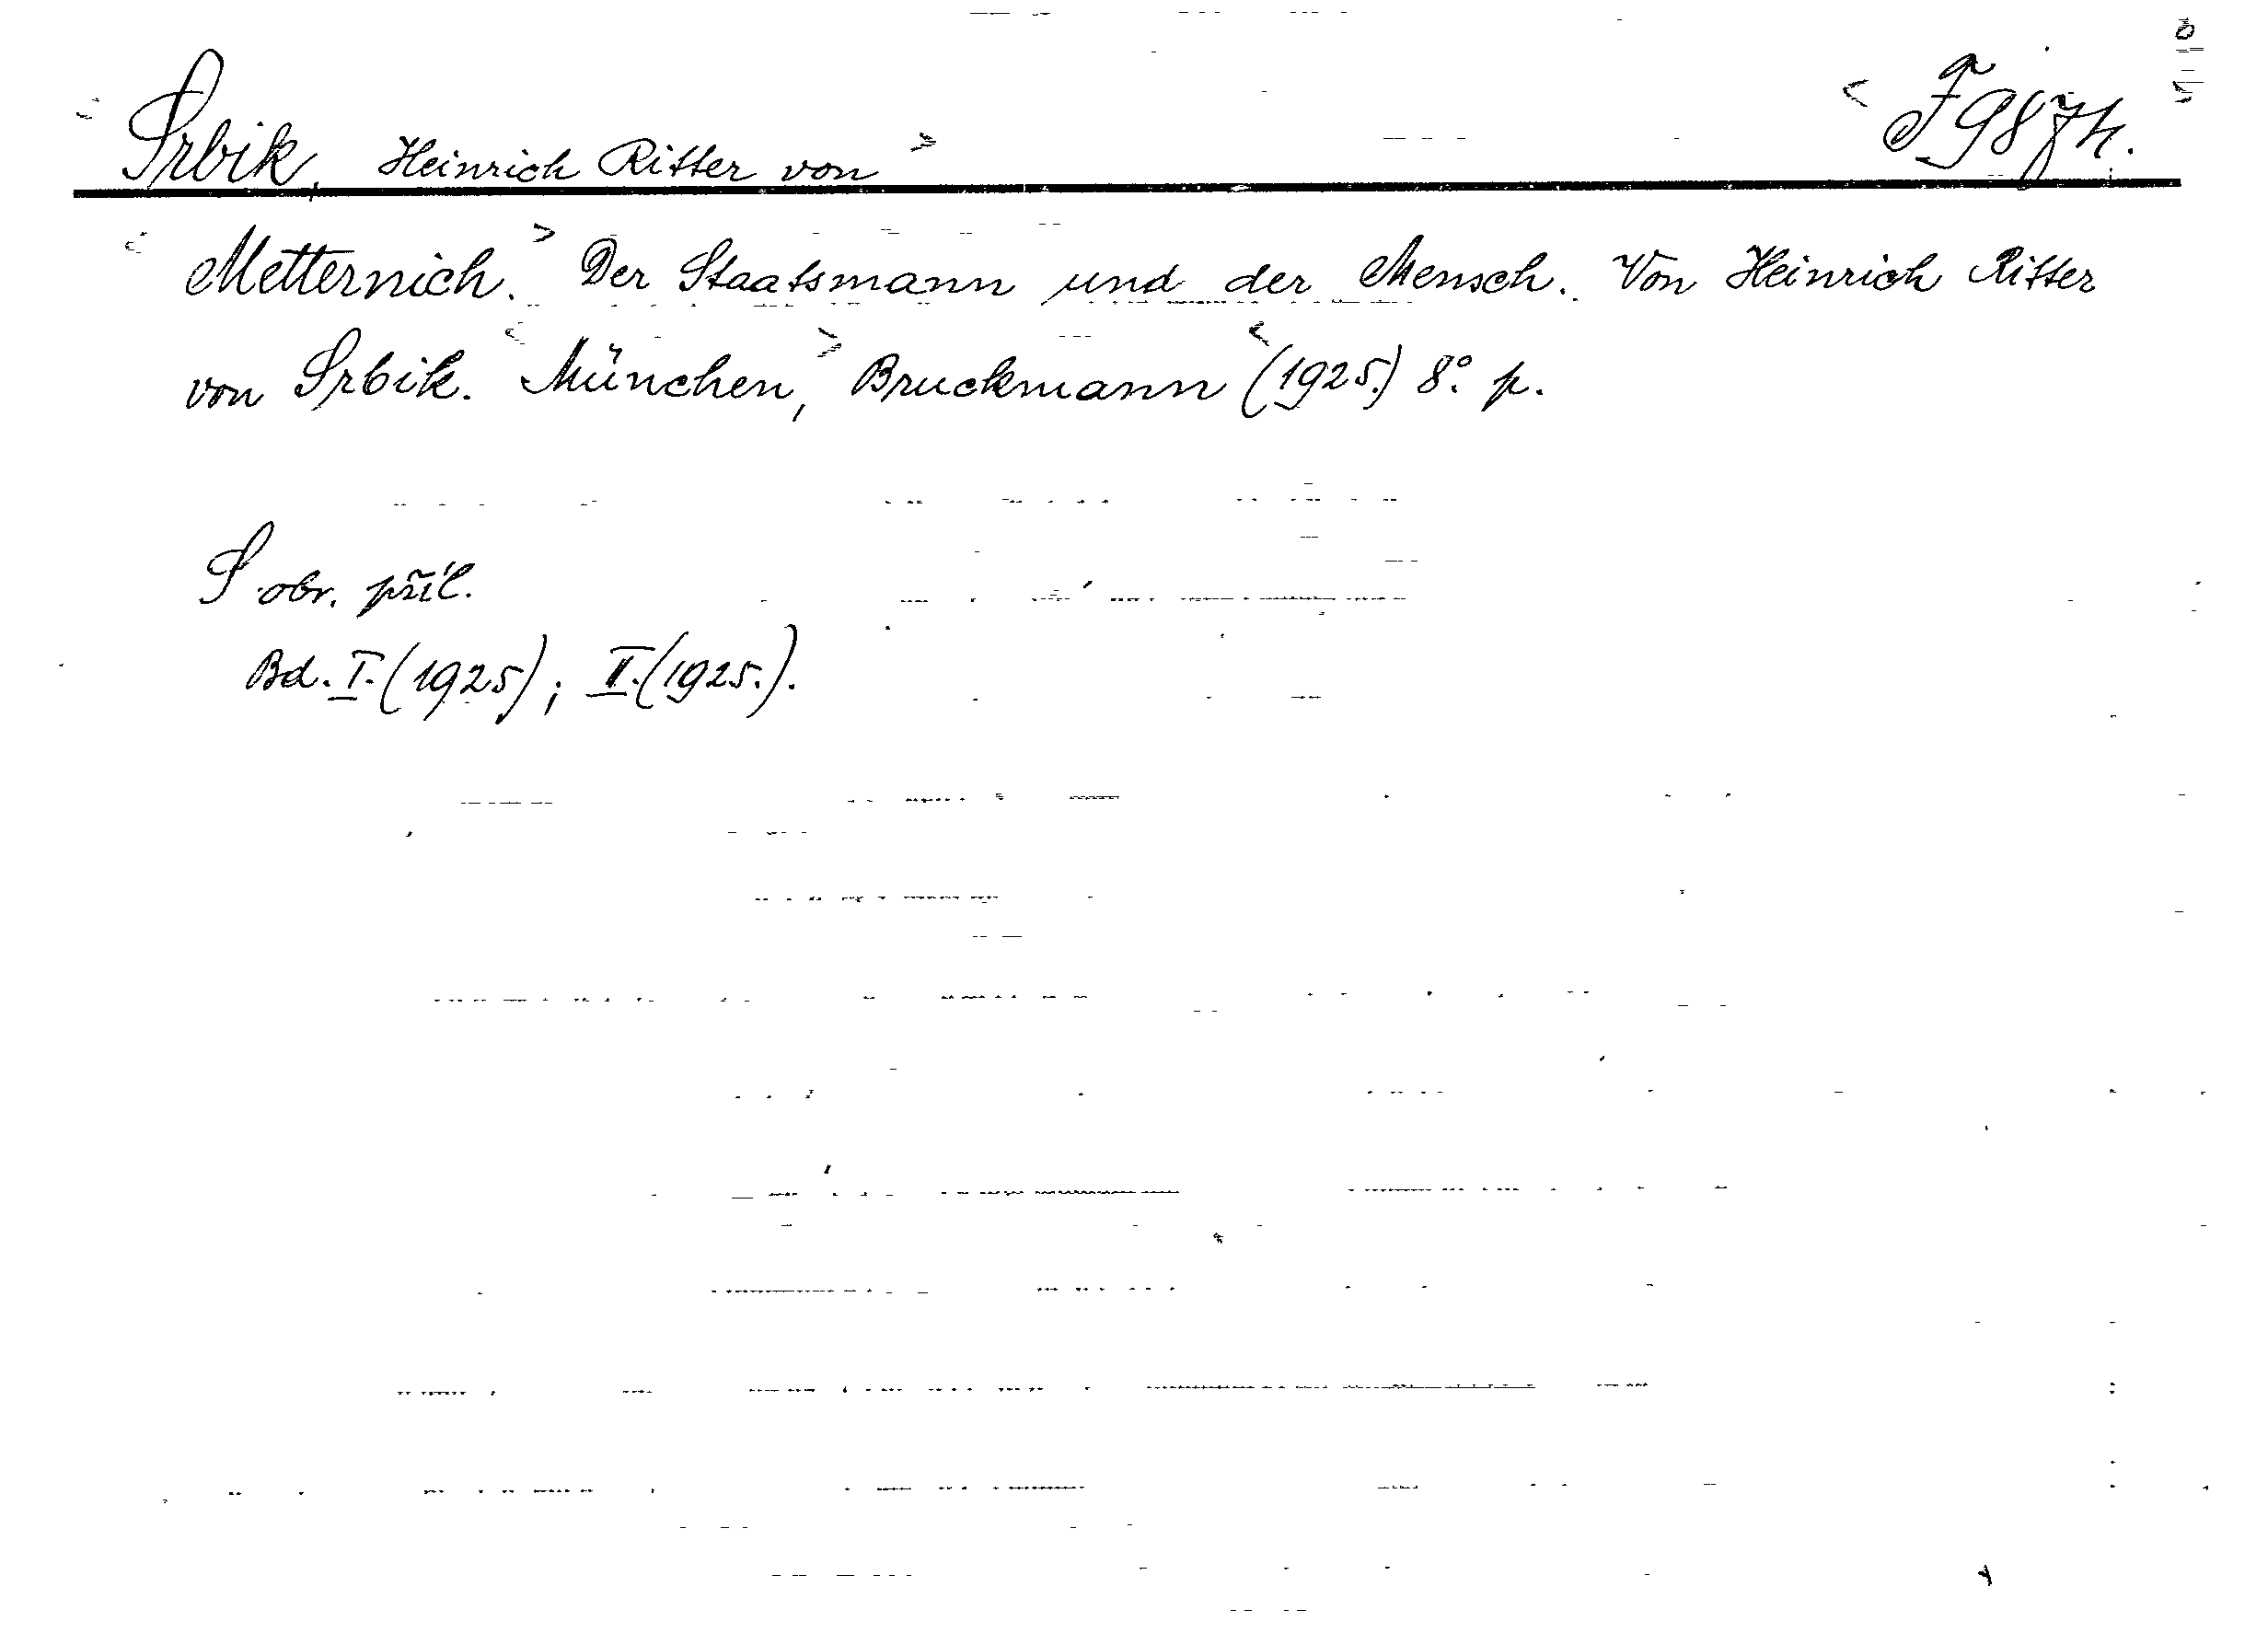 Srbik, Heinrich Ritter von F 9874.
Metternich. Der Staatsmann und der Mensch. Von Heinrich Ritter
von Srbik. München, Bruckmann (1925.) 8° p.
S obr. příl.
Bd. I. (1925); II. (1925.).